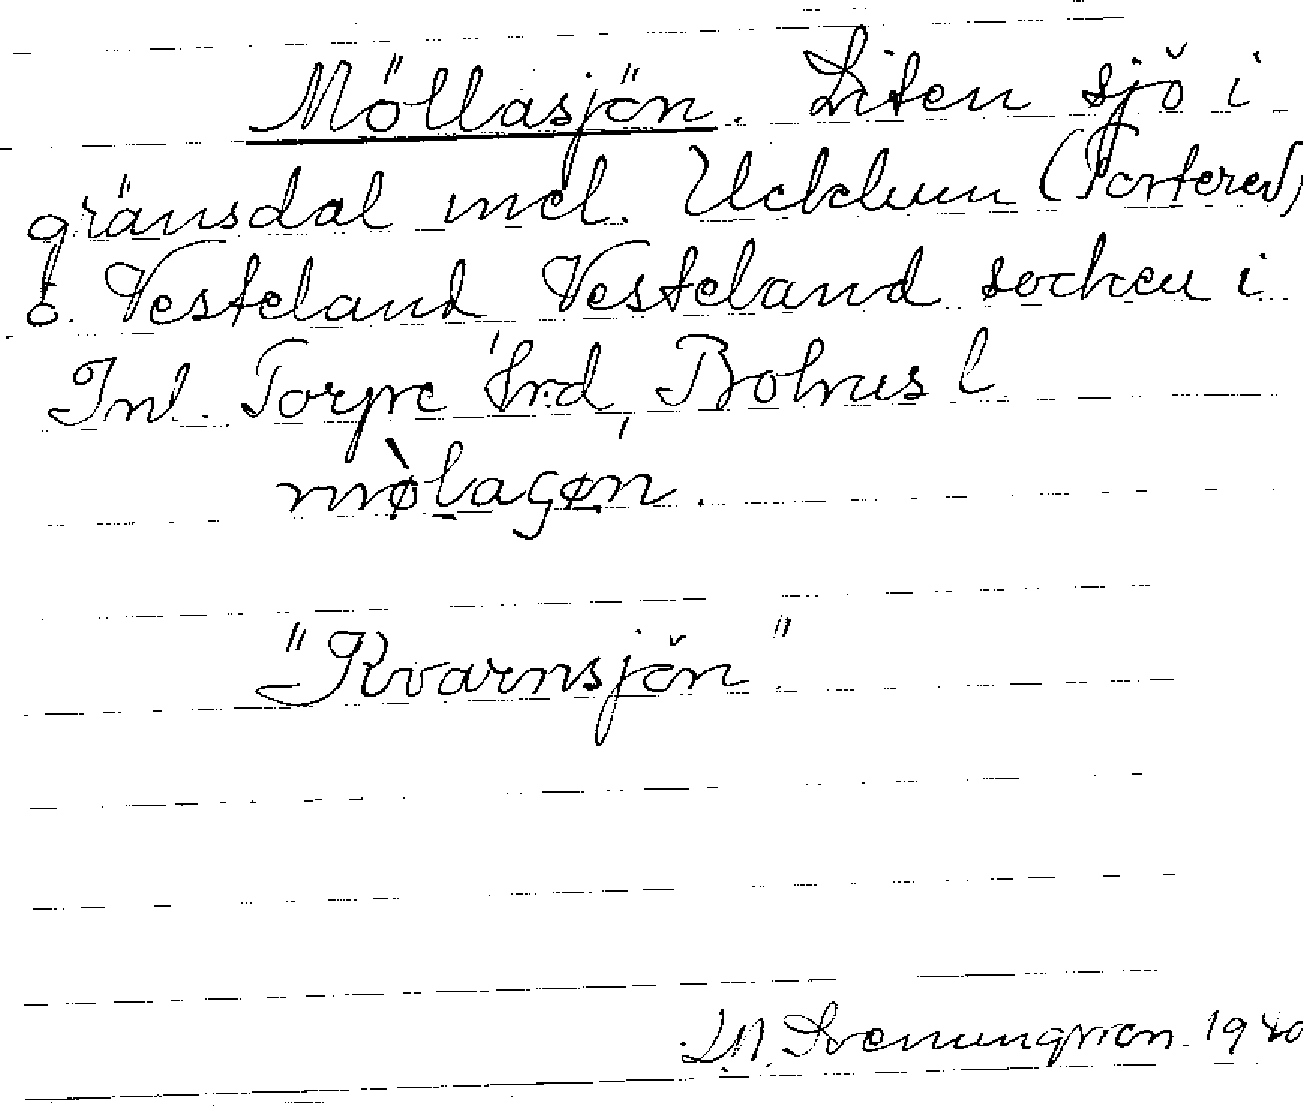 Möllasjön. Liten sjö i
gränsdal mel. Ucklum (Portered)
o. Vesteland Vesteland socken i
Inl. Torpe hrd, Bohus l
mòlagøn.
"Kvarnsjön".
Svenungsson 1940